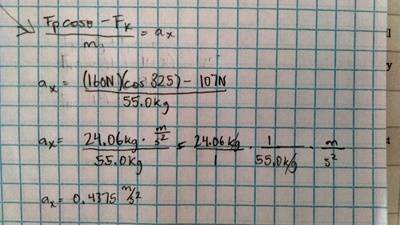 Fpcosθ - Fk / m = ax
ax = (160N)(cos 325) - 107N / 55.0kg
ax = 24.06kg · m/s² / 55.0kg = 24.06kg / 1 · 1 / 55.0kg · m / s²
ax = 0.4375 m/s²